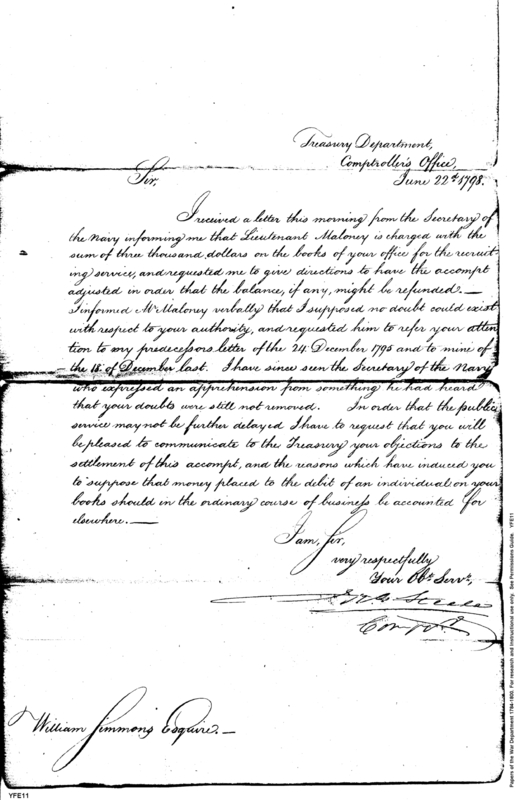 Treasury Department,
Comptroller's Office,
June 22d 1798.
Sir,
I received a letter this morning from the Secretary of
the Navy informing me that Lieutenant Maloney is charged with the
sum of three thousand dollars on the books of your office for the recruit-
ing service, and requested me to give directions to have the accompt
adjusted in order that the balance, if any, might be refunded. —
I informed Mr Maloney verbally that I supposed no doubt could exist
with respect to your authority, and requested him to refer your atten
tion to my predecessors letter of the 24. December 1795 and to mine of
the 18. of December last. I have since seen the Secretary of the Navy
who expressed an apprehension from something he had heard
that your doubts were still not removed. In order that the public
service may not be further delayed I have to request that you will
be pleased to communicate to the Treasury your objections to the
settlement of this accompt, and the reasons which have induced you
to suppose that money placed to the debit of an individual on your
books should in the ordinary course of business be accounted for
elsewhere. —
I am, Sir,
very respectfully
Your Obt. Servt,
Jno Steele
Compt.
William Simmons Esquire. —
YFE11
Papers of the War Department 1784-1800. For research and instructional use only. See Permissions Guide. YFE11